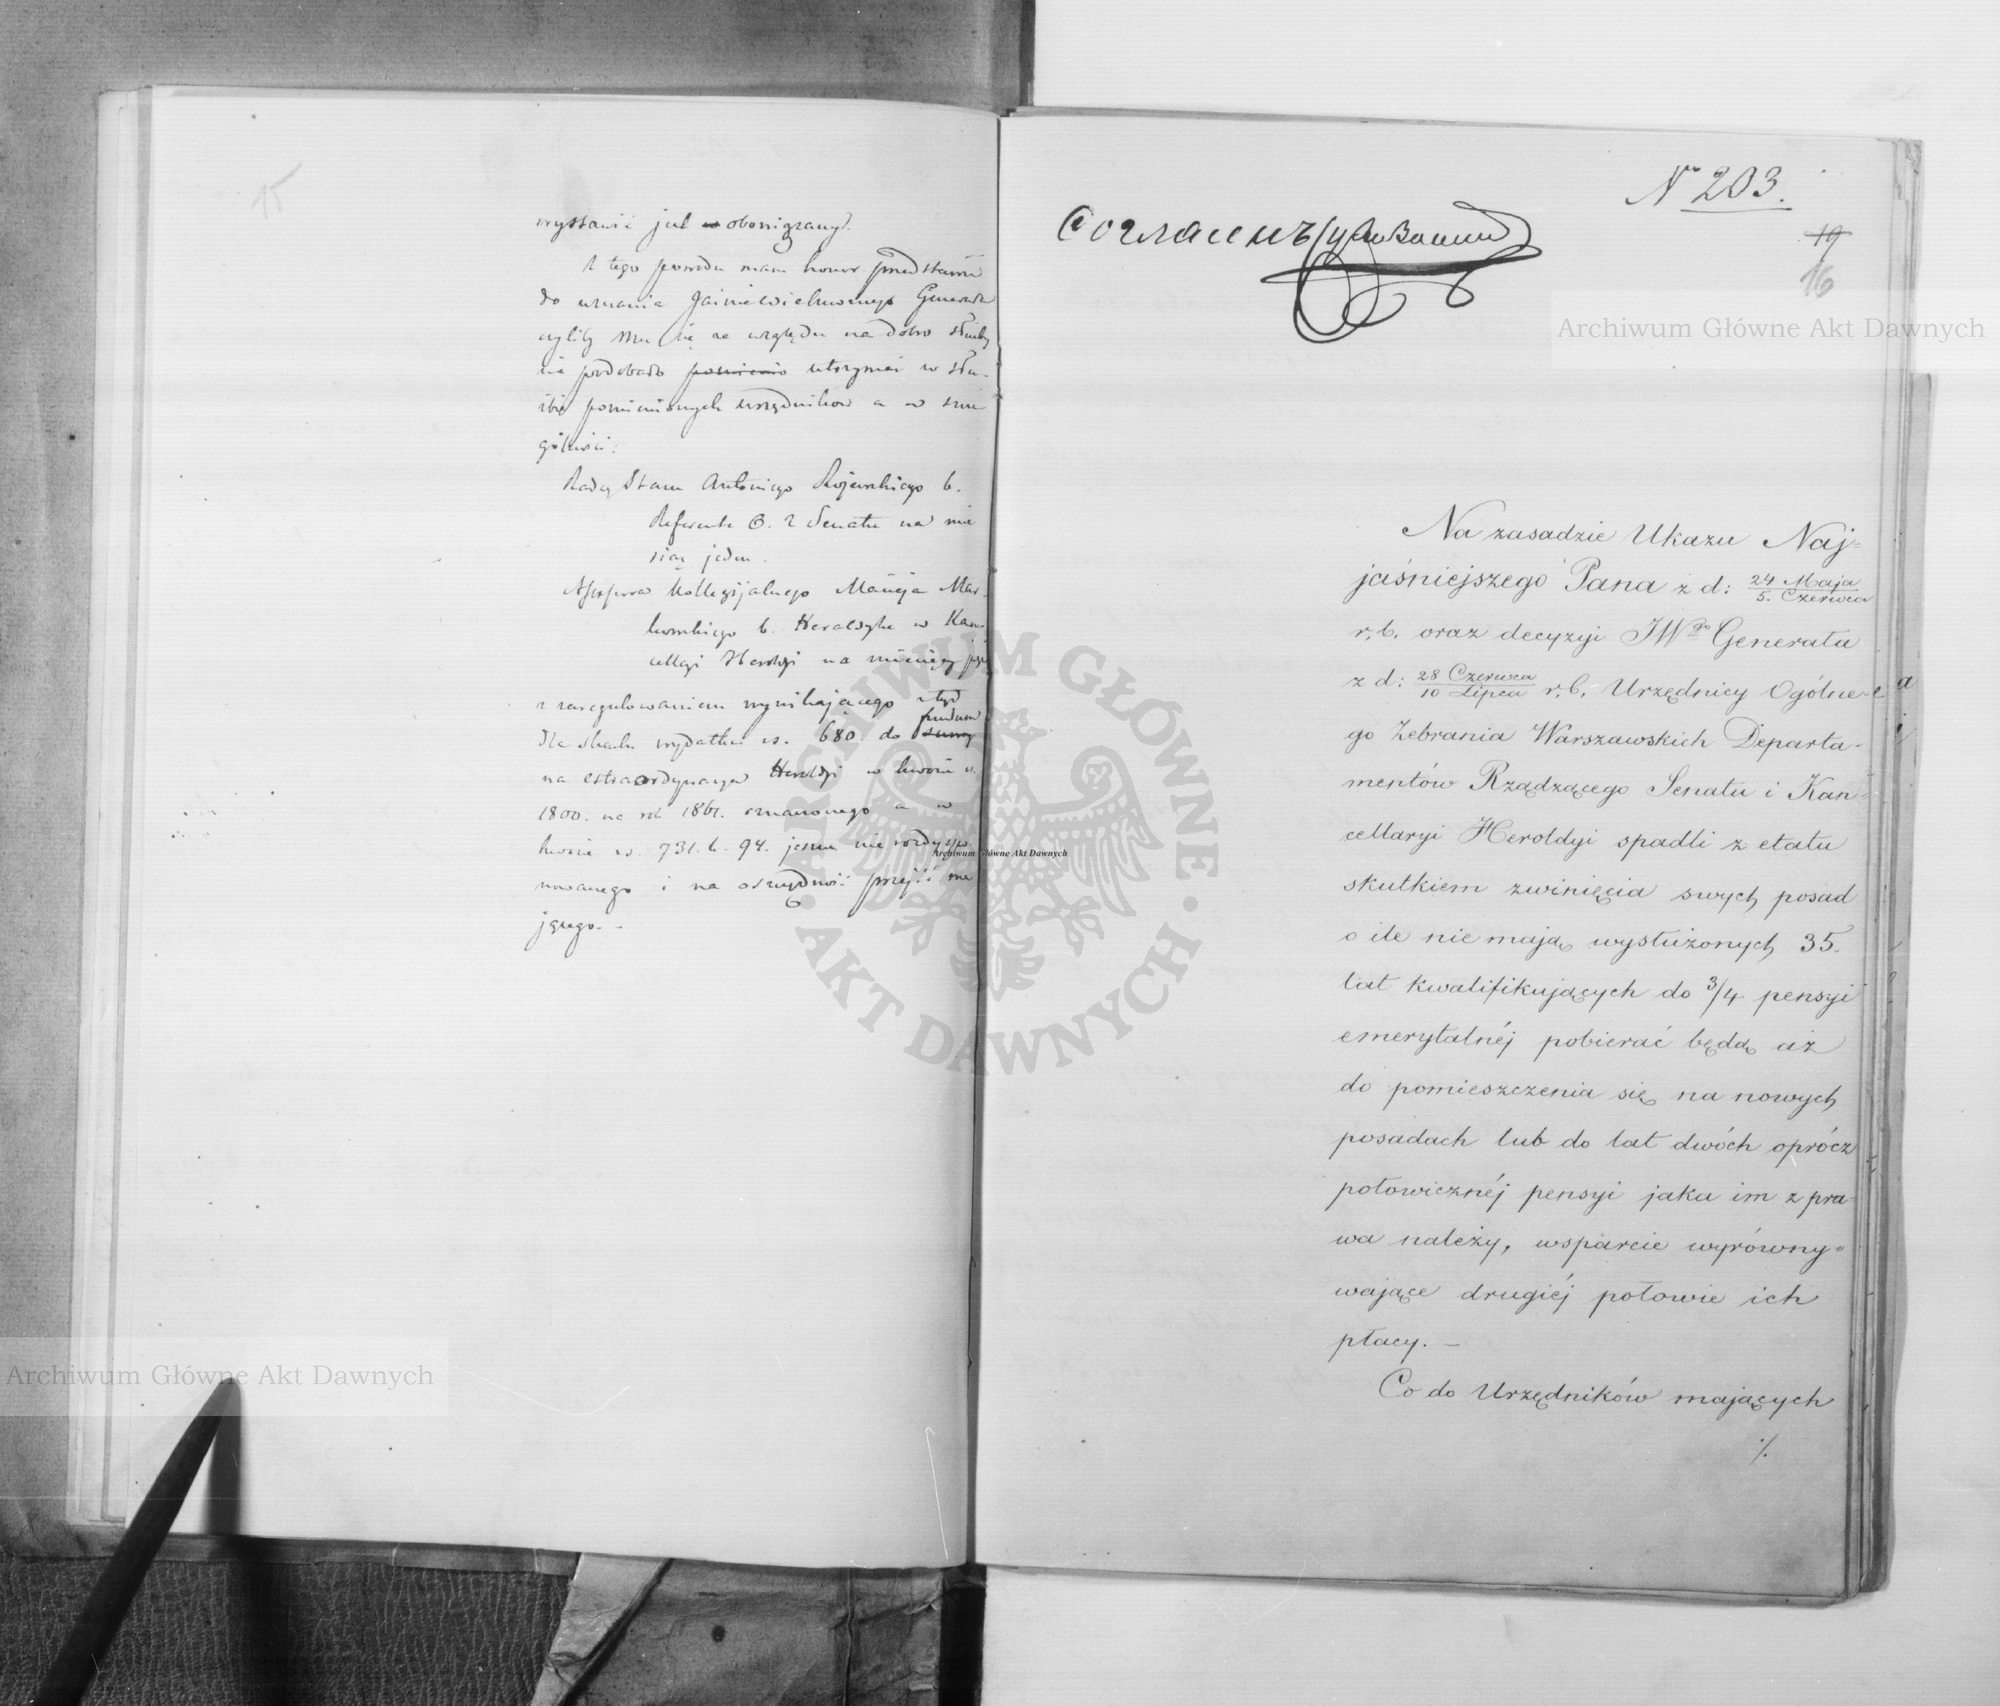 15
wystawić jak obowiązany.
Z tego powodu mam honor przedstawić
do uznania Jaśniewielmożnego Generała
czyliby Mu się ze względu na dobro służby
nie podobało utrzymać w słu-
żbie pomienionych urzędników a w szcze
gólności:
Radcę Stanu Antoniego b.
Referenta O. Z. Senatu na mie
siąc jeden.
Assesora Kollegijalnego Macieja
b. w Kan-
cellaryi Heroldyi na miesięcy
z zaregulowaniem wynikającego ztąd
dla skarbu wydatku rs. 680. do funduszu
na extraordynarya Heroldyi w kwocie rs.
1800. na rok 1861. oznaczonego a w
kwocie rs. 731. k. 94. jeszcze nie rozdyspo
nowanego i na oszczędność przejść ma
jącego. –
№ 203.
Согласенъ
19
16
Na zasadzie Ukazu Naj-
jaśniejszego Pana z d: 24 Maja / 5. Czerwca
r. b. oraz decyzyi JWgo Generała
z d: 28 Czerwca / 10 Lipca r. b. Urzędnicy Ogólne-
go Zebrania Warszawskich Departa-
mentów Rządzącego Senatu i Kan-
cellaryi Heroldyi spadli z etatu
skutkiem zwinięcia swych posad
o ile nie mają wysłużonych 35.
lat kwalifikujących do 3/4 pensyi
emerytalnéj pobierać będą aż
do pomieszczenia się na nowych
posadach lub do lat dwóch oprócz
połowicznéj pensyi jaka im z pra-
wa należy, wsparcie wyrówny-
wające drugiéj połowie ich
płacy. –
Co do Urzędników mających
./.
Archiwum Główne Akt Dawnych
Archiwum Główne Akt Dawnych
Archiwum Główne Akt Dawnych
ARCHIWUM GŁÓWNE
AKT DAWNYCH